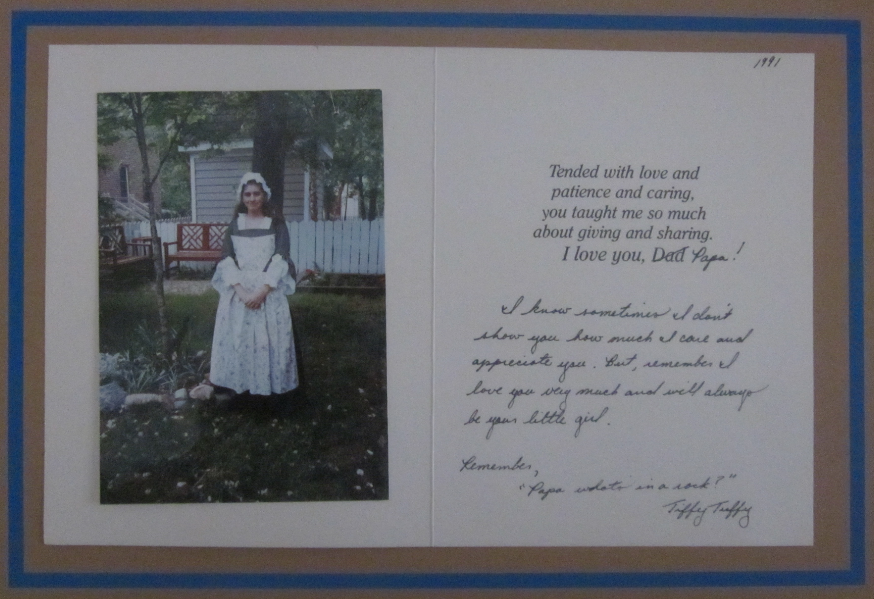 1991
Tended with love and
patience and caring,
you taught me so much
about giving and sharing.
I love you, Dad Papa!
I know sometimes I don't
show you how much I care and
appreciate you. But, remember I
love you very much and will always
be your little girl.
Remember,
"Papa whats in a rock?"
Tiffy Tuffy